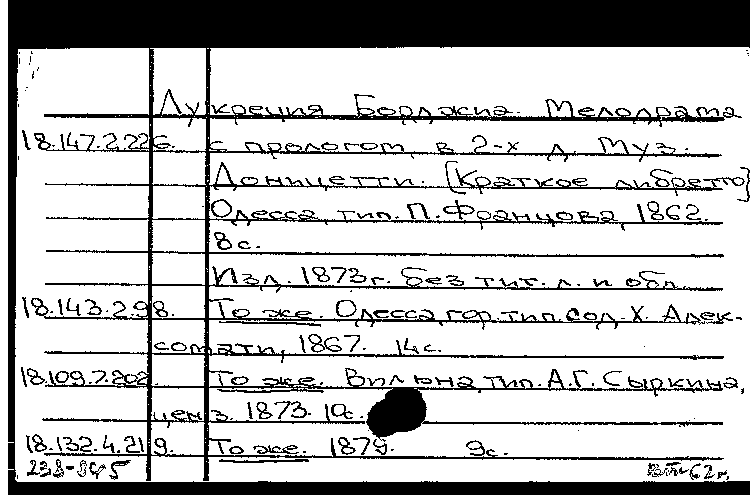 Лукреция Борджиа. Мелодрама
18.147.2.226. с прологом, в 2-х д. Муз.
Доницетти. [Краткое либретто]
Одесса, тип. П. Францова, 1862.
8 с.
Изд. 1873 г. без тит. л. и обл.
18.143.2.98. То же. Одесса, гор. тип. сод. Х. Алек-
сомати, 1867. 14 с.
18.109.7.202. То же. Вильна, тип. А.Г. Сыркина,
ценз. 1873. 10 с.
18.132.4.219. То же. 1879. 9 с.
ВТ-62 г.